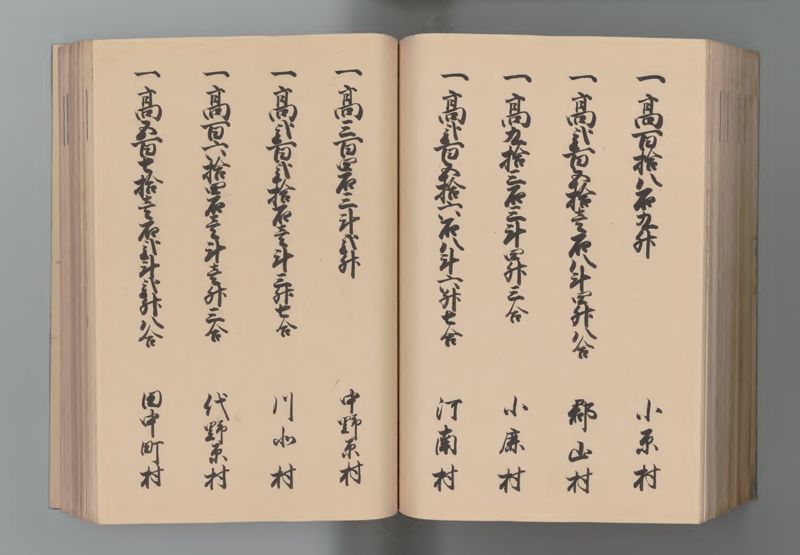 一高百拾八石九升 小原村
一高弐百五拾壱石八斗四升八合 郡山村
一高九拾三石三斗四升三合 小廉村
一高弐百五拾六石八斗六升七合 河南村
一高三百四石三斗弐升 中野原村
一高弐百弐拾石壱斗三升七合 川北村
一高百六拾四石壱斗壱升三合 代野原村
一高五百七拾壱石弐斗弐升八合 田中町村